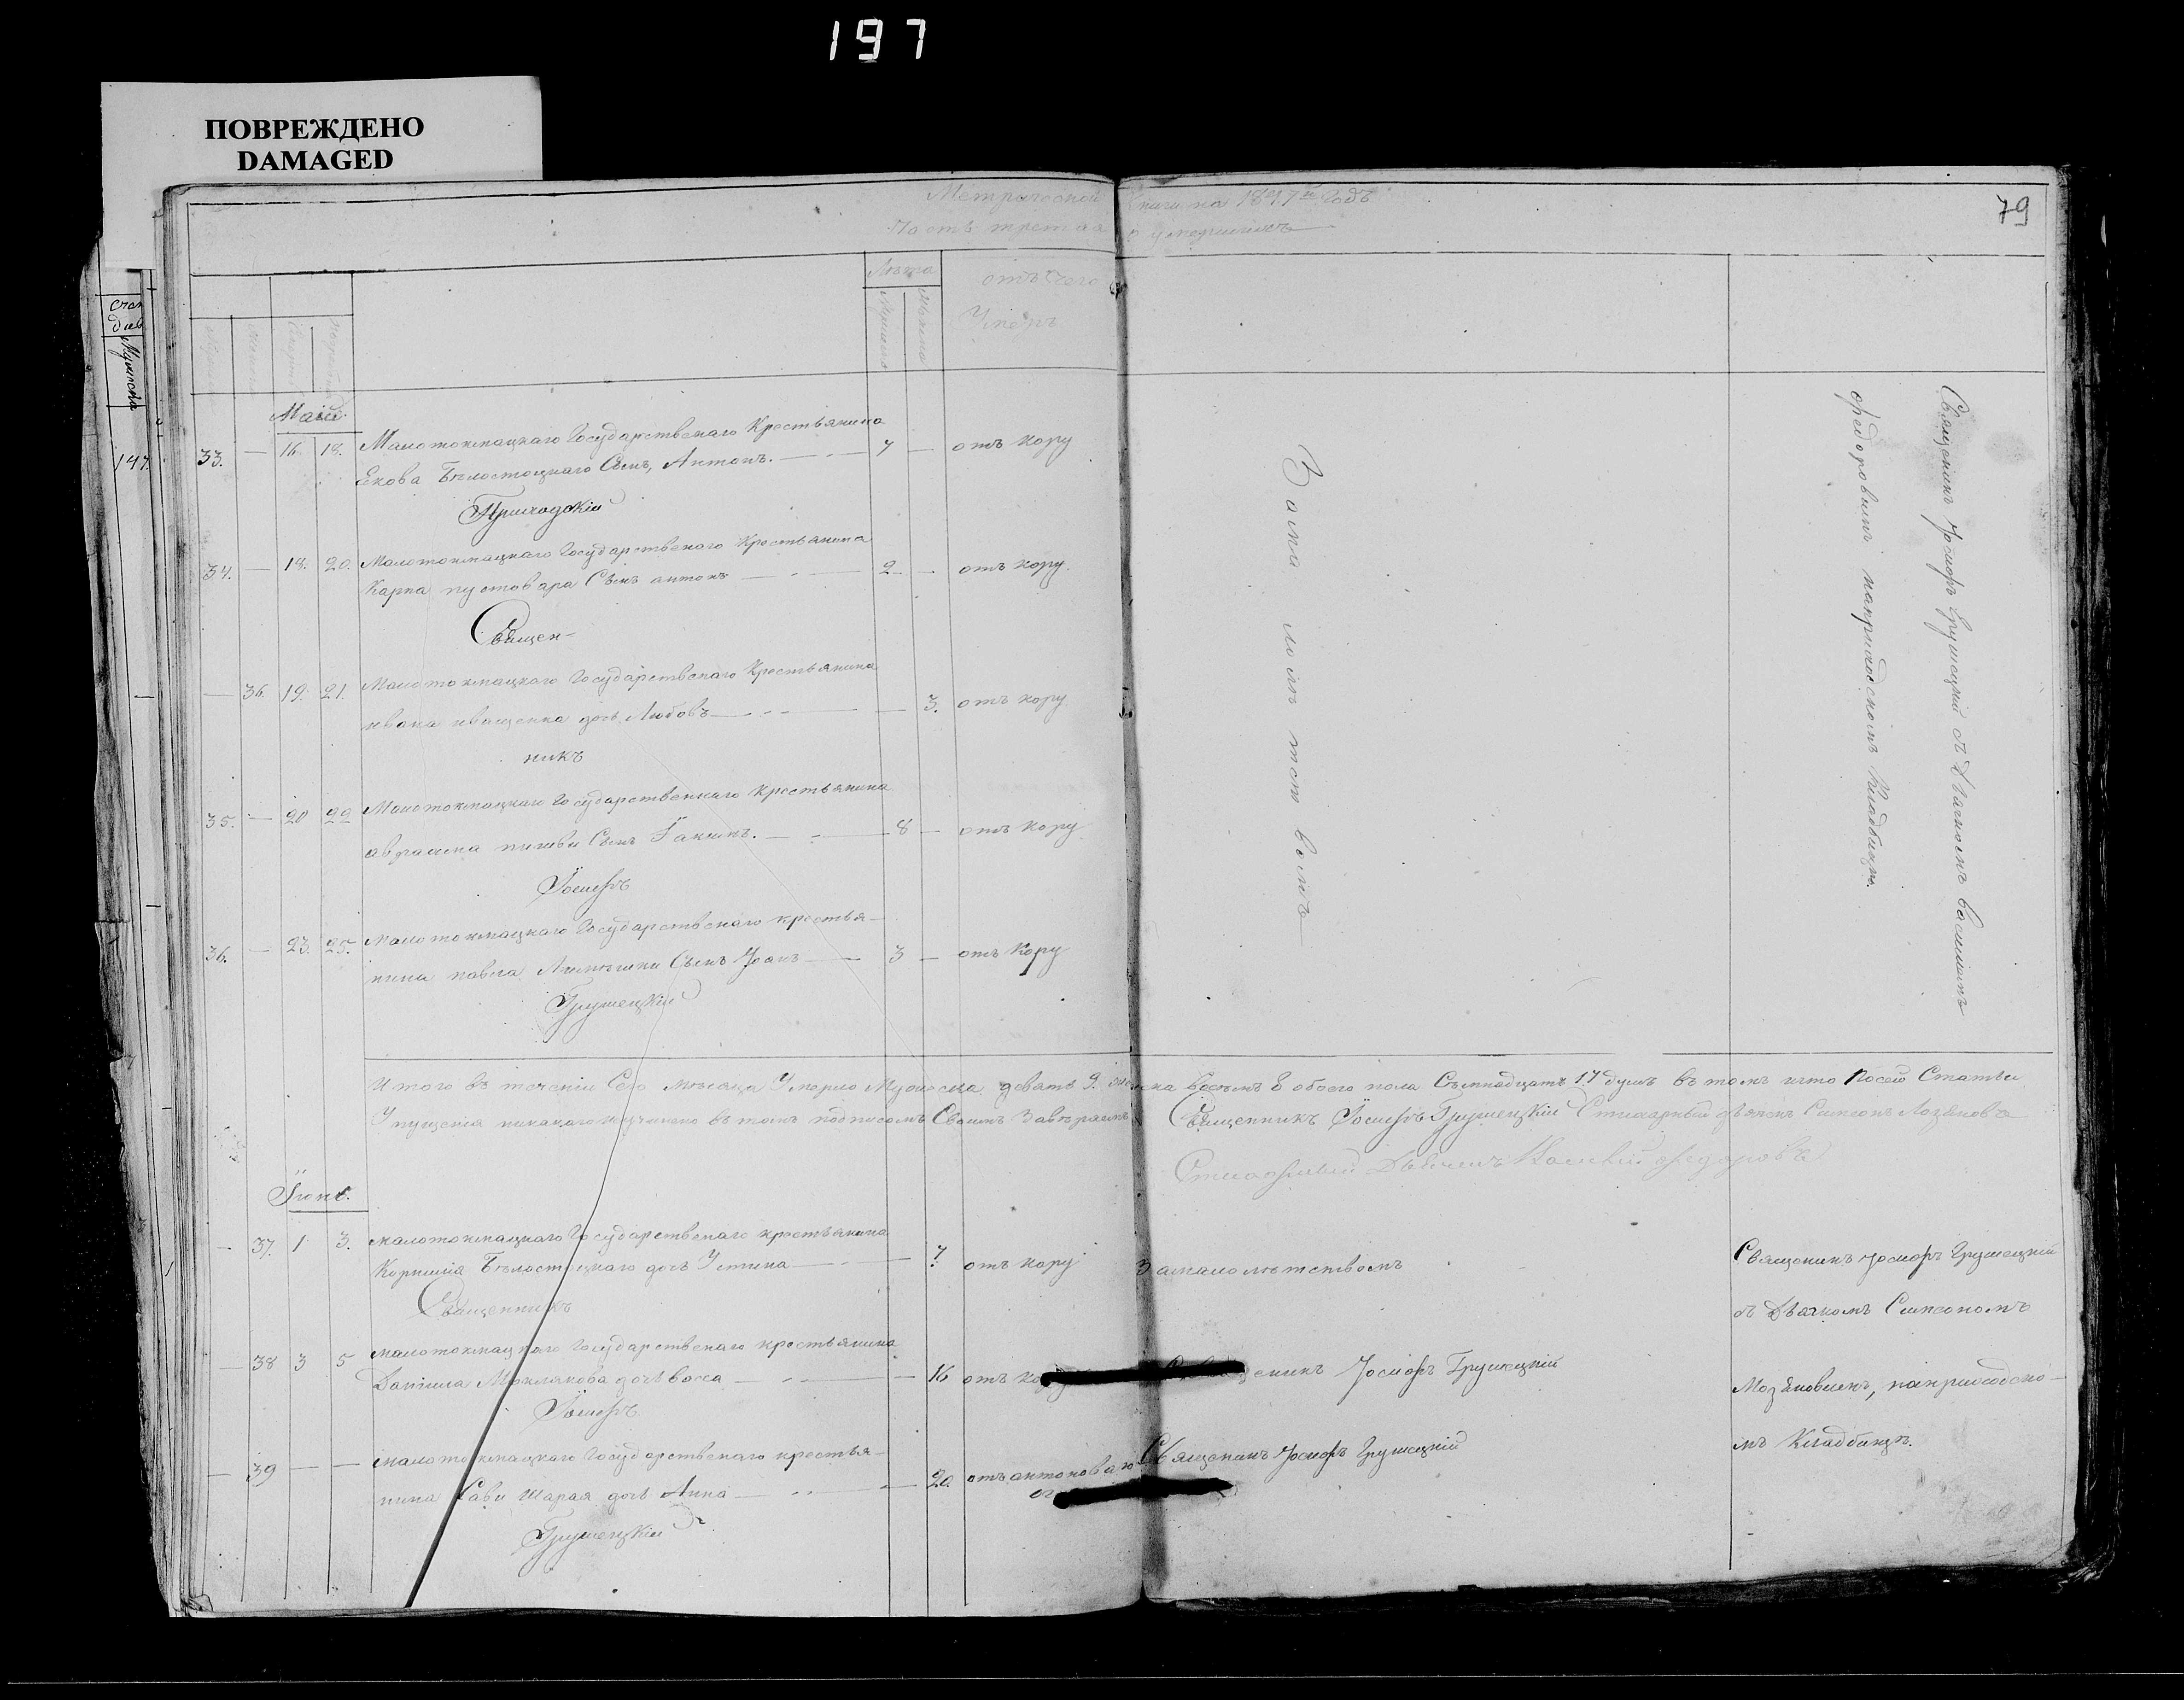 197
ПОВРЕЖДЕНО
DAMAGED
79
Метрической книги на 1847й годъ
Часть третая о умершихъ
Лѣта
отъ чего
Умеръ
Мужеска
147.
Маій.
33. — 16. 18. Малотокмацкаго Государственаго Крестьянина
Екова Бѣлостоцкаго Сынъ, Антонъ. — 7 — отъ кору
Приходскій
34. — 18. 20. Малотокмацкаго Государственаго Крестьянина
Карпа пустовара Сынъ антонъ — 2 — отъ кору.
Священ-
— 36. 19. 21. Малотокмацкаго Государственаго Крестьянина
ивана иващенка дочь Любовъ — — 3. отъ кору
никъ
35. — 20 22 Малотокмацкаго Государственнаго крестьянина
авраама Сынъ Iакимъ. — 8 — отъ кору
Iосифъ
36. — 23. 25. Малотокмацкаго Государственаго крестья-
нина павла Сынъ Iоанъ — 3 — отъ Кору
Грушецкій
За мало лѣт ст вомъ
Священикъ Iосифъ Грушецкій съ Дьячкомъ василіемъ
федоровимъ наприходскомъ Кладбищѣ.
Итого въ теченіи Сего мѣсаца Умерло Мужеска девать 9. женска Восѣмъ 8 обоего пола Съмнадцать 17 душъ въ томъ што посей Статьи
Упущенія никакого неучинено въ томъ подписомъ Своимъ Завѣраемъ Священникъ Iосифъ Грушецкій Стихарный дьячекъ Симеонъ Лозановъ
Стихарный Дьячекъ Василій федоровъ
Iюнь.
— 37. 1 3. малотокмацкаго Государственаго крестьянина
Корнилія Бѣлостоцкаго дочь Устина — — 7 отъ кору За малолѣтствомъ Священикъ Iосифъ Грушецкій
Священникъ съ Дьячкомъ Симеономъ
— 38 3 5 малотокмацкаго Государственаго крестьянина
Даніила дочь васса — — 16 отъ кору Священикъ Iосифъ Грушецкій
Iосифъ наприходско-
— 39 — — малотокмацкаго Государственаго крестья-
нина Сави Шарая дочь Анна — — 20. отъ антоноваго Священикъ Iосифъ Грушецкій мъ Кладбищѣ.
Грушецкій